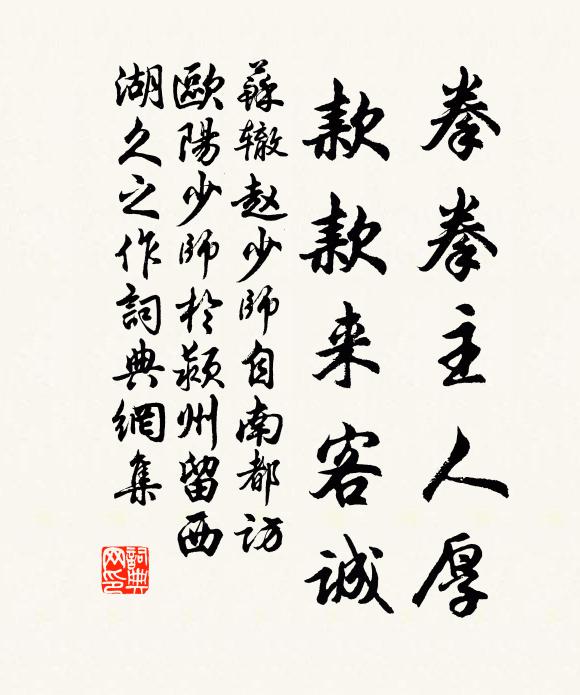 拳拳主人厚
款款来客诚
蘇辙赵少師自南都访
歐陽少師於颍州留西
湖久之作詞典網集
詞典网印